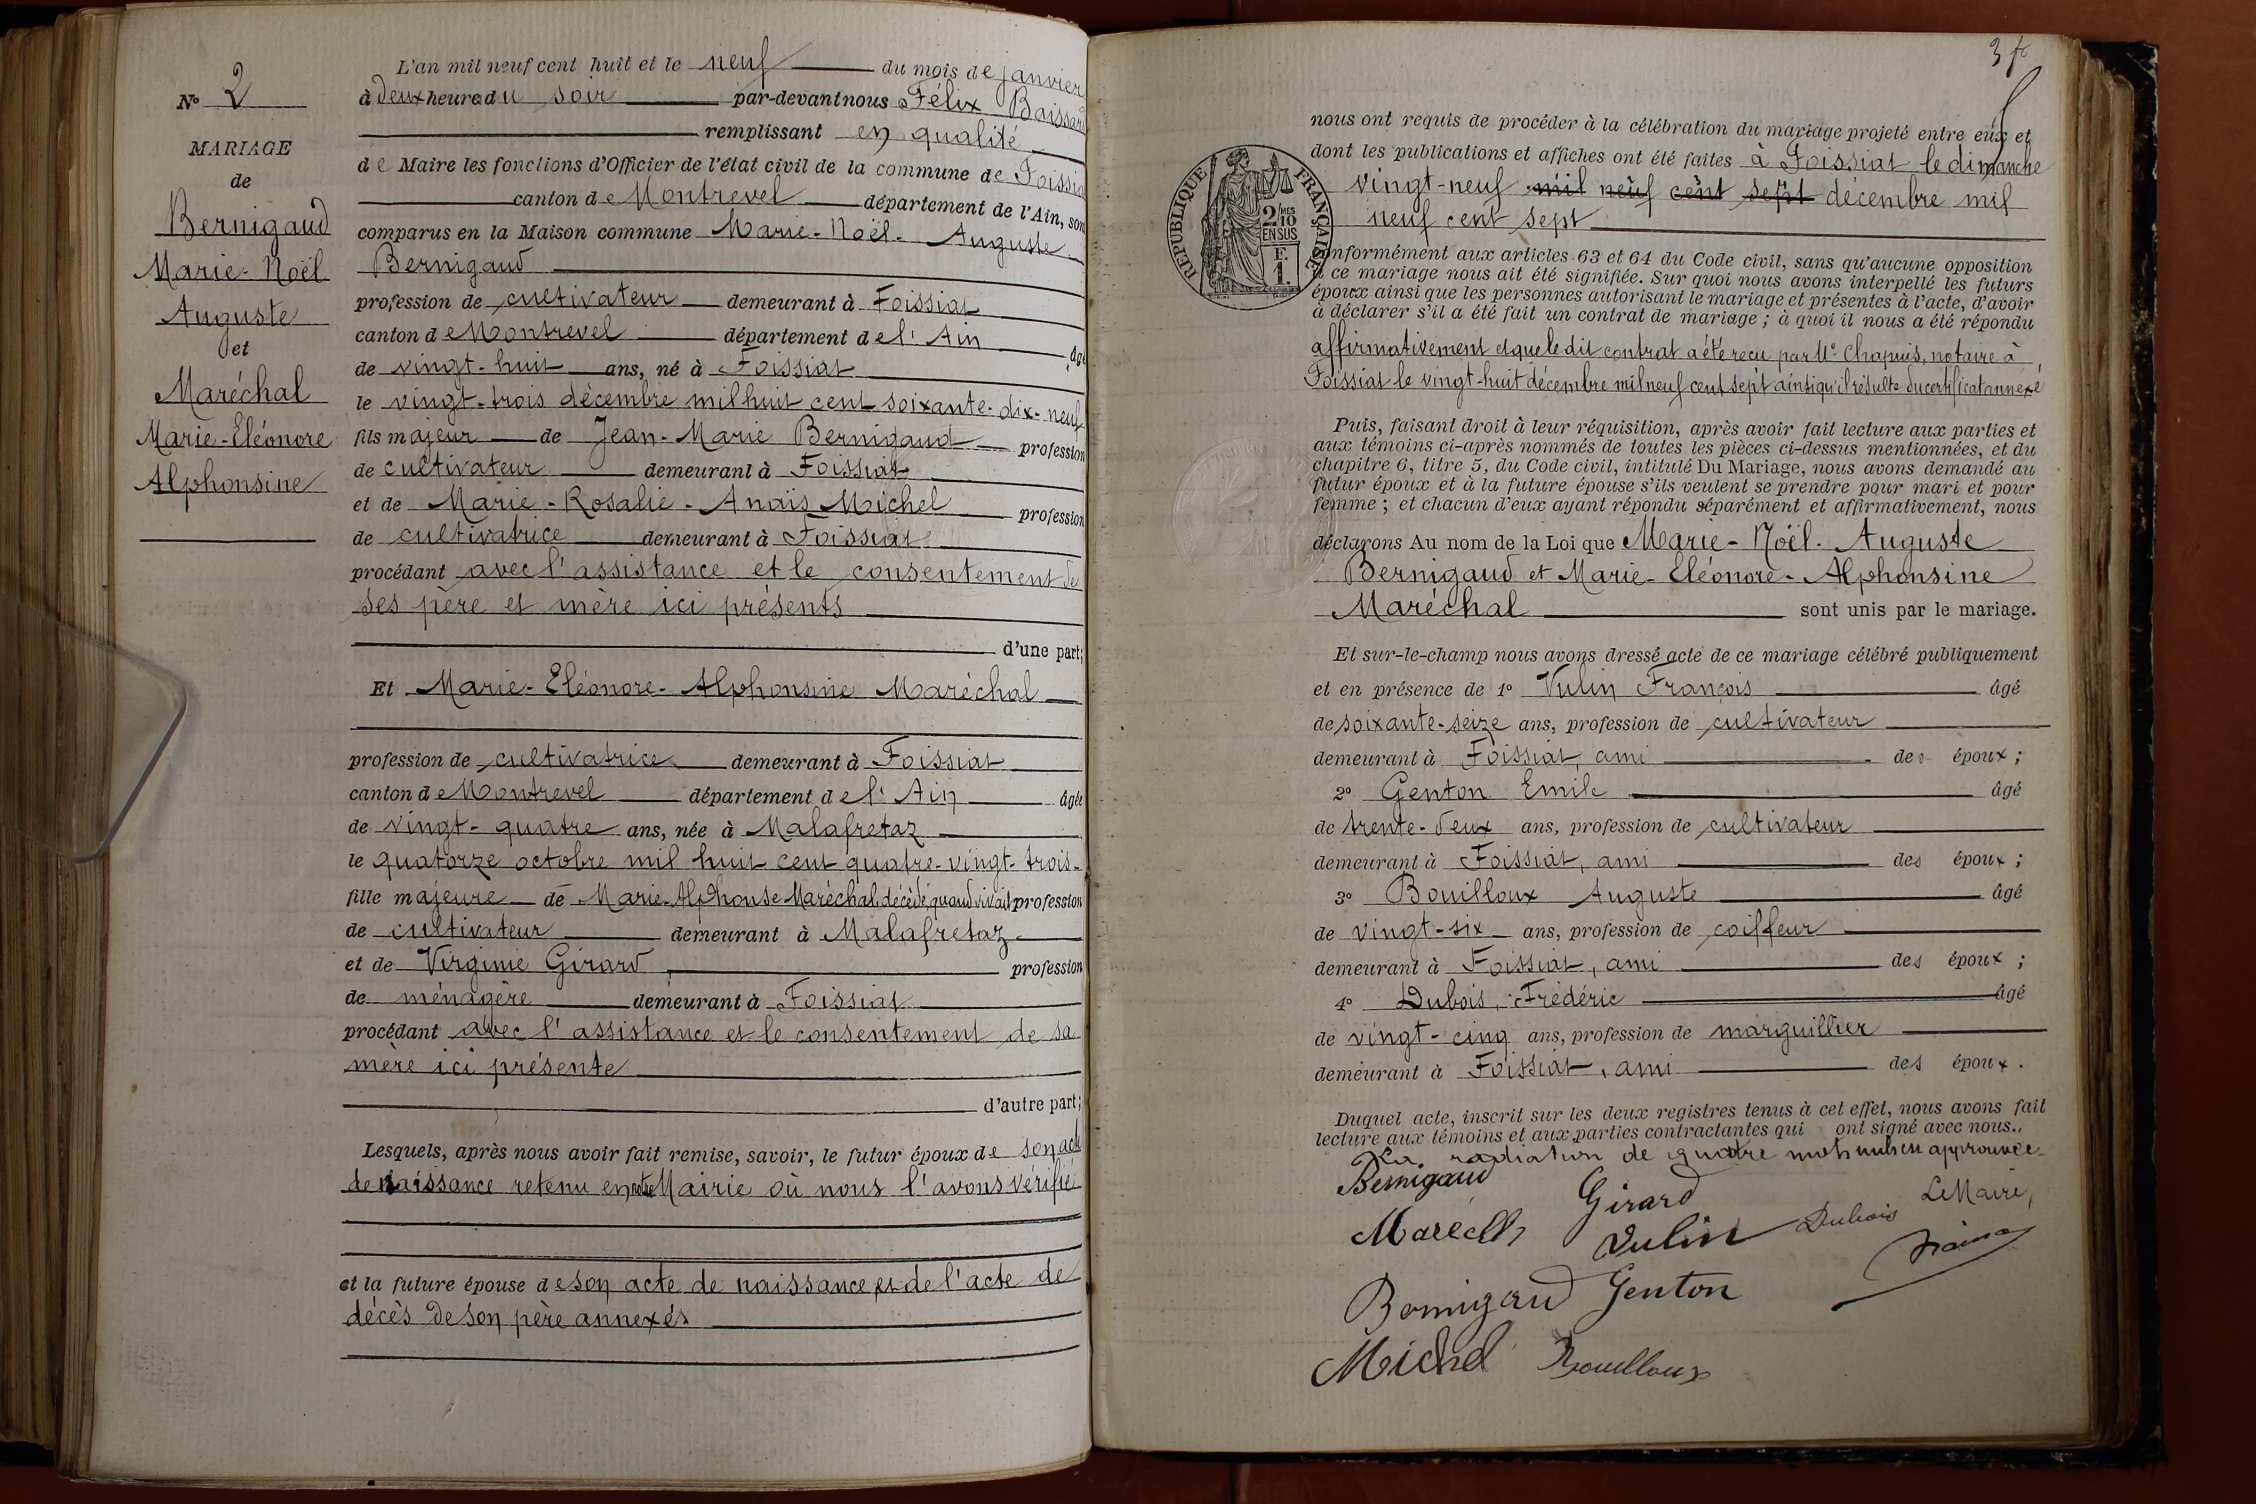 N° 2
MARIAGE
de
Bernigaud
Marie-Noël
Auguste
et
Maréchal
Marie-Eléonore
Alphonsine
L'an mil neuf cent huit et le neuf du mois de janvier
à deux heures du soir par-devant nous Félix
remplissant en qualité
de Maire les fonctions d'Officier de l'état civil de la commune de Foissiat
canton de Montrevel département de l'Ain, sont
comparus en la Maison commune Marie-Noël-Auguste
Bernigaud
profession de cultivateur demeurant à Foissiat
canton de Montrevel département de l'Ain âgé
de vingt-huit ans, né à Foissiat
le vingt-trois décembre mil huit cent soixante-dix-neuf
fils majeur de Jean-Marie Bernigaud profession
de cultivateur demeurant à Foissiat
et de Marie-Rosalie-Anaïs Michel profession
de cultivatrice demeurant à Foissiat
procédant avec l'assistance et le consentement de
ses père et mère ici présents
d'une part;
Et Marie-Eléonore-Alphonsine Maréchal
profession de cultivatrice demeurant à Foissiat
canton de Montrevel département de l'Ain âgée
de vingt-quatre ans, née à Malafretaz
le quatorze octobre mil huit cent quatre-vingt-trois
fille majeure de Marie-Alphonse Maréchal décédé, quand vivait profession
de cultivateur demeurant à Malafretaz
et de Virginie Girard, profession
de ménagère demeurant à Foissiat
procédant avec l'assistance et le consentement de sa
mère ici présente
d'autre part;
Lesquels, après nous avoir fait remise, savoir, le futur époux de son acte
de naissance retenu en notre Mairie où nous l'avons vérifié
et la future épouse de son acte de naissance et de l'acte de
décès de son père annexés
3
nous ont requis de procéder à la célébration du mariage projeté entre eux et
dont les publications et affiches ont été faites à Foissiat le dimanche
vingt-neuf mil neuf cent sept décembre mil
neuf cent sept
RÉPUBLIQUE FRANÇAISE
2/10 MES
EN SUS
F.
1.
conformément aux articles 63 et 64 du Code civil, sans qu'aucune opposition
à ce mariage nous ait été signifiée. Sur quoi nous avons interpellé les futurs
époux ainsi que les personnes autorisant le mariage et présentes à l'acte, d'avoir
à déclarer s'il a été fait un contrat de mariage; à quoi il nous a été répondu
affirmativement et que le dit contrat a été reçu par Me Chapuis, notaire à
Foissiat le vingt-huit décembre mil neuf cent sept ainsi qu'il résulte du certificat annexé
Puis, faisant droit à leur réquisition, après avoir fait lecture aux parties et
aux témoins ci-après nommés de toutes les pièces ci-dessus mentionnées, et du
chapitre 6, titre 5, du Code civil, intitulé Du Mariage, nous avons demandé au
futur époux et à la future épouse s'ils veulent se prendre pour mari et pour
femme; et chacun d'eux ayant répondu séparément et affirmativement, nous
déclarons Au nom de la Loi que Marie-Noël-Auguste
Bernigaud et Marie-Eléonore-Alphonsine
Maréchal sont unis par le mariage.
Et sur-le-champ nous avons dressé acte de ce mariage célébré publiquement
et en présence de 1° Vulin François âgé
de soixante-seize ans, profession de cultivateur
demeurant à Foissiat, ami des époux;
2° Genton Emile âgé
de trente-deux ans, profession de cultivateur
demeurant à Foissiat, ami des époux;
3° Bouilloux Auguste âgé
de vingt-six ans, profession de coiffeur
demeurant à Foissiat, ami des époux;
4° Dubois, Frédéric âgé
de vingt-cinq ans, profession de marguillier
demeurant à Foissiat, ami des époux.
Duquel acte, inscrit sur les deux registres tenus à cet effet, nous avons fait
lecture aux témoins et aux parties contractantes qui ont signé avec nous..
La radiation de quatre mots nuls est approuvée.
Bernigaud
Girard
Le Maire,
Maréchal
Vulin
Dubois
Bernigaud
Genton
Michel
Bouilloux